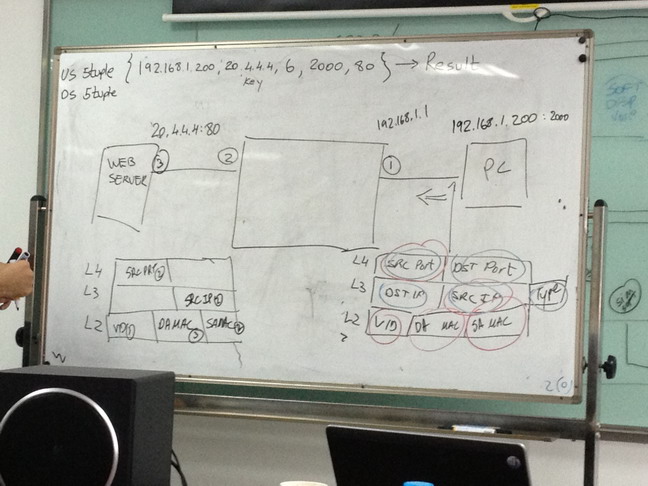 US 5tuple {192.168.1.200, 20.4.4.4, 6, 2000, 80} → Result
key
DS 5tuple
20.4.4.4:80
192.168.1.1
192.168.1.200:2000
WEB SERVER
3
2
1
PC
L4
L3 SRC IP
L2 VID DA MAC
L4 SRC Port DST Port
L3 DST IP SRC IP Type
L2 VID DA MAC SA MAC